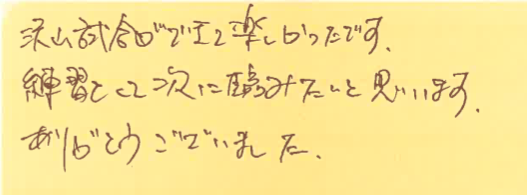 沢山試合ができて楽しかったです.
練習して次に臨みたいと思います.
ありがとうございました.